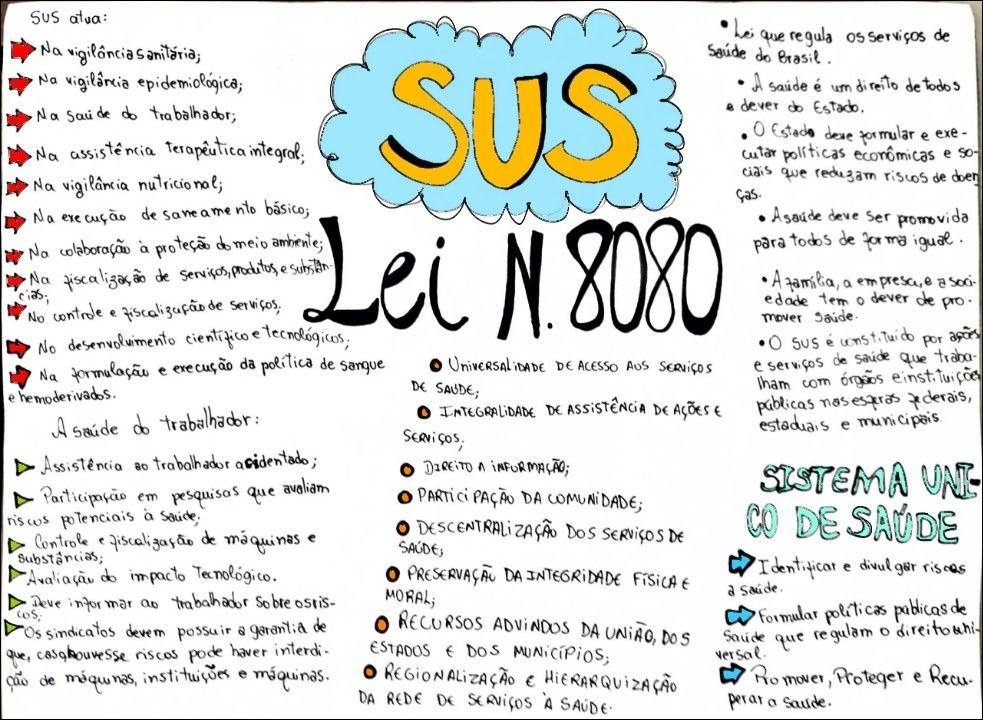 SUS atua:
Na vigilância sanitária;
Na vigilância epidemiológica;
Na saúde do trabalhador;
Na assistência terapêutica integral;
Na vigilância nutricional;
Na execução de saneamento básico;
Na colaboração à proteção do meio ambiente;
Na fiscalização de serviços, produtos, e substân-
cias;
No controle e fiscalização de serviços.
No desenvolvimento científico e tecnológicos;
Na formulação e execução da política de sangue
e hemoderivados.
A saúde do trabalhador:
Assistência ao trabalhador acidentado;
Participação em pesquisas que avaliam
riscos potenciais à saúde;
Controle e fiscalização de máquinas e
substâncias;
Avaliação do impacto Tecnológico.
Deve informar ao trabalhador sobre os ris-
cos;
Os sindicatos devem possuir a garantia de
que, caso houvesse riscos pode haver interdi-
ção de máquinas, instituições e máquinas.
SUS
Lei N. 8080
• UNIVERSALIDADE DE ACESSO AOS SERVIÇOS
DE SAÚDE;
• INTEGRALIDADE DE ASSISTÊNCIA DE AÇÕES E
SERVIÇOS;
• DIREITO A INFORMAÇÃO;
• PARTICIPAÇÃO DA COMUNIDADE;
• DESCENTRALIZAÇÃO DOS SERVIÇOS DE
SAÚDE;
• PRESERVAÇÃO DA INTEGRIDADE FÍSICA E
MORAL;
• RECURSOS ADVINDOS DA UNIÃO, DOS
ESTADOS E DOS MUNICÍPIOS;
• REGIONALIZAÇÃO E HIERARQUIZAÇÃO
DA REDE DE SERVIÇOS À SAÚDE.
• Lei que regula os serviços de
saúde do Brasil.
• A saúde é um direito de todos
e dever do Estado.
• O Estado deve formular e exe-
cutar políticas econômicas e so-
ciais que reduzam riscos de doen
ças.
• A saúde deve ser promovida
para todos de forma igual.
• A família, a empresa, e a soci-
edade tem o dever de pro-
mover saúde.
• O SUS é constituído por ações
e serviços de saúde que traba-
lham com órgãos e instituições
públicas nas esferas federais,
estaduais e municipais.
SISTEMA UNI-
CO DE SAÚDE
Identificar e divulgar riscos
a saúde.
Formular políticas públicas de
saúde que regulam o direito uni-
versal.
Promover, Proteger e Recu-
perar a saúde.